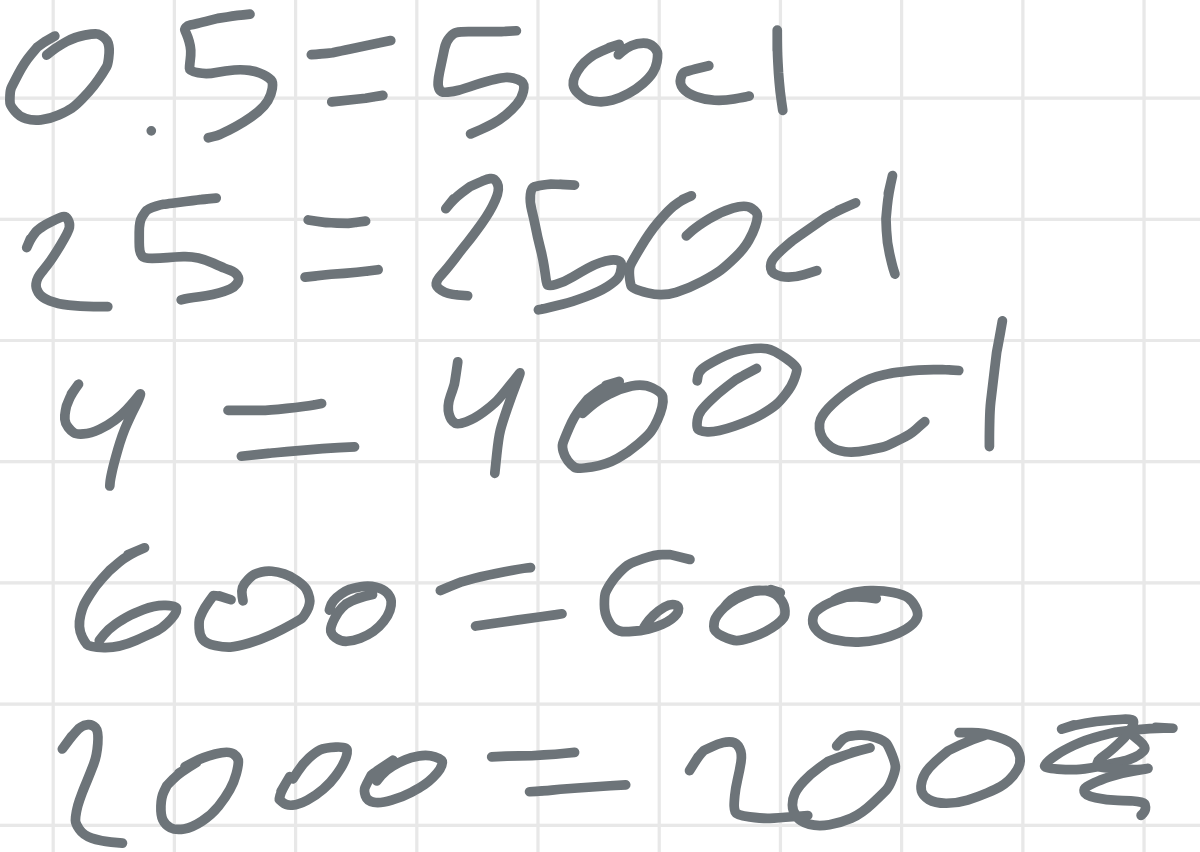 0.5=50cl
25=250cl
4=400cl
600=600
2000=200